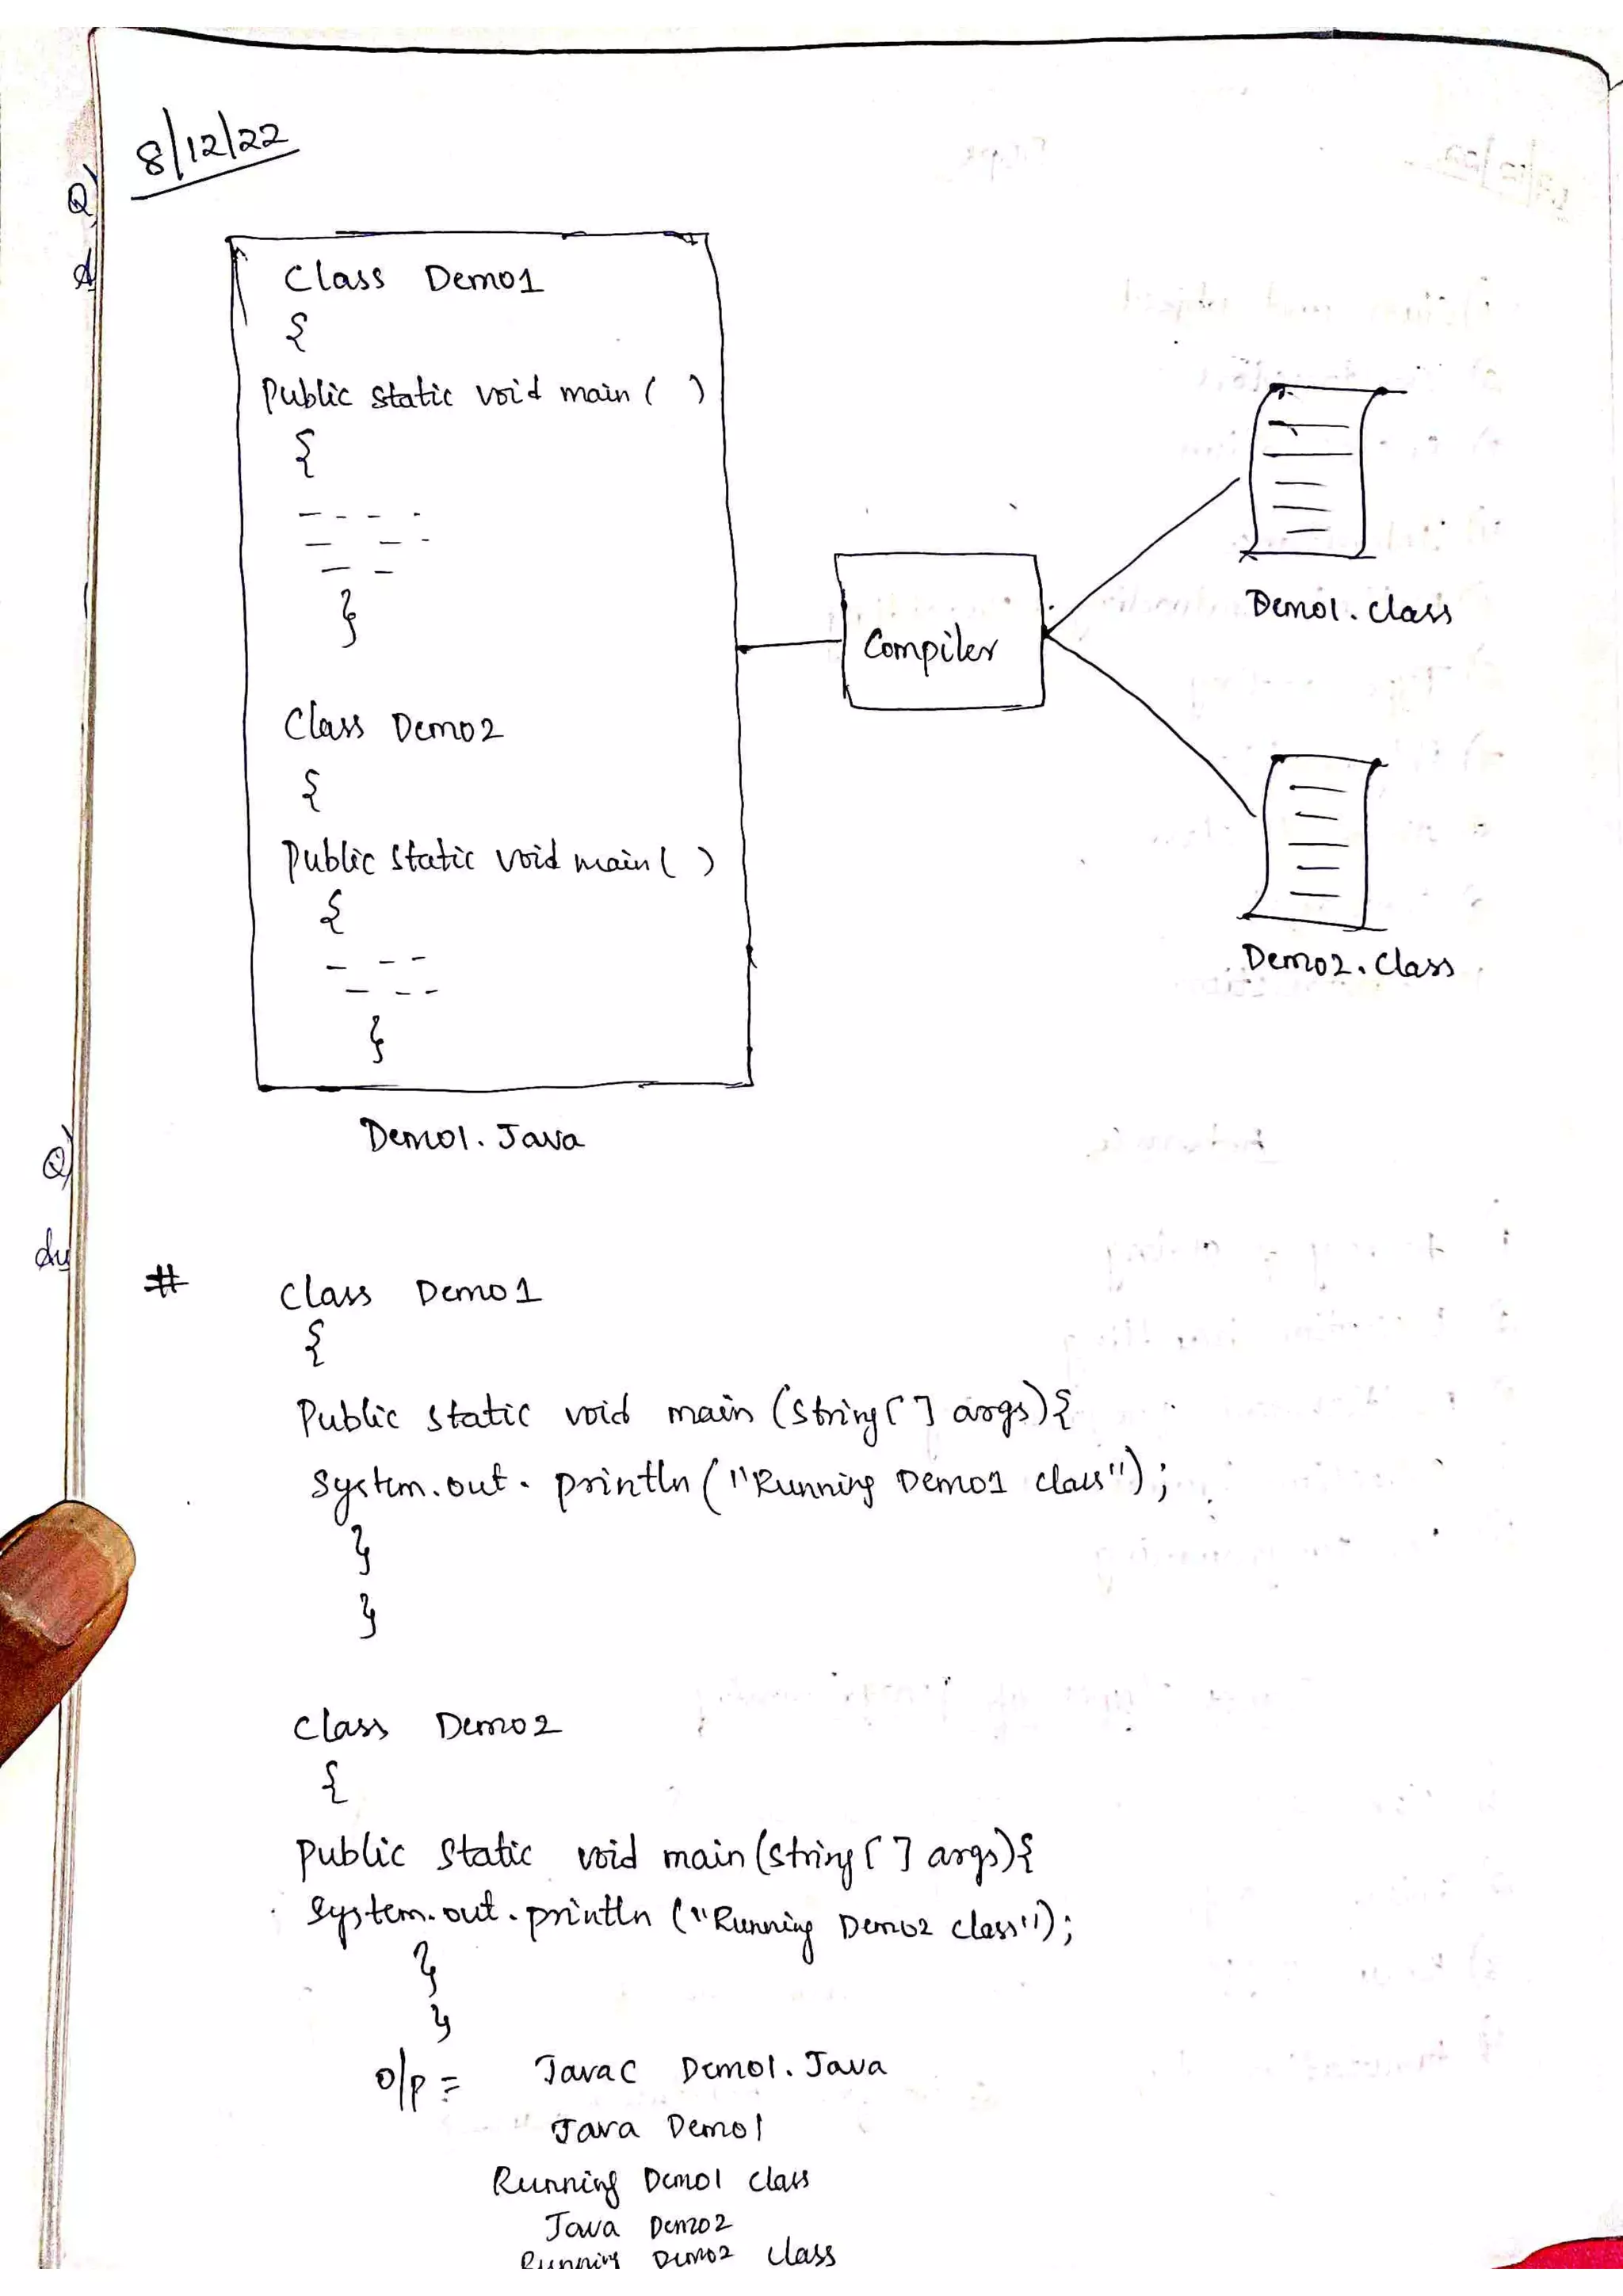 8/12/22
Q)
A
Class Demo1
{
Public static void main ( )
{
}
Class Demo2
{
Public static void main ( )
{
}
Demo1. Java
Compiler
Demo1. Class
Demo2. Class
Q)
#
Class Demo1
{
Public static void main (String [ ] args) {
System.out. println ("Running Demo1 class");
}
}
Class Demo2
{
Public Static void main (String [ ] args) {
System.out. println ("Running Demo2 class");
}
}
o/p = Javac Demo1. Java
Java Demo1
Running Demo1 class
Java Demo2
Running Demo2 class